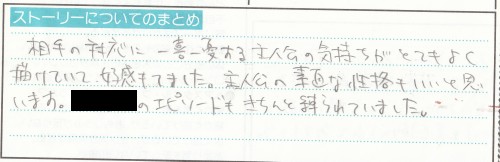 ストーリーについてのまとめ
相手の対応に一喜一憂する主人公の気持ちがとてもよく
描けていて好感もてました。主人公の素直な性格もいいと思
います。のエピソードもきちんと練られていました。